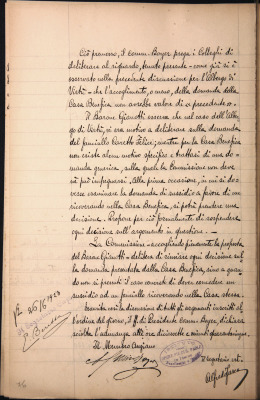 Ciò premesso, il comm. Boyer prega i Colleghi di
deliberare al riguardo, tenuto presente - come già si è
osservato nella precedente discussione per l'Albergo di
Virtù - che l'accoglimento, o meno, della domanda della
Casa Benefica non avrebbe valore di "precedente".
Il Barone Gianotti osserva che nel caso dell'Alber-
go di Virtù, vi era motivo a deliberare sulla domanda
del fanciullo Felice; mentre per la Casa Benefica
non esiste alcun motivo specifico e trattasi di una do-
manda generica, sulla quale la Commissione non dovreb-
be può impegnarsi. Alla prima occasione, in cui si do-
vesse esaminare la domanda di sussidio a favore di un
ricoverando nella Casa Benefica, si potrà prendere una
decisione. Propone per ciò formalmente di sospendere
ogni decisione sull'argomento in questione. -
La Commissione - accogliendo pienamente la proposta
del Barone Gianotti - delibera di rinviare ogni decisione sul-
la domanda presentata dalla Casa Benefica, sino a quan-
do non si presenti il caso concreto di dover concedere un
sussidio ad un fanciullo ricoverando nella Casa stessa.
Esaurita così la discussione di tutti gli argomenti inscritti al-
l'ordine del giorno, il ff. di Presidente comm. Boyer, dichiara
sciolta l'adunanza alle ore diciassette e minuti quarantacinque.
Il Membro Anziano
Il segretario